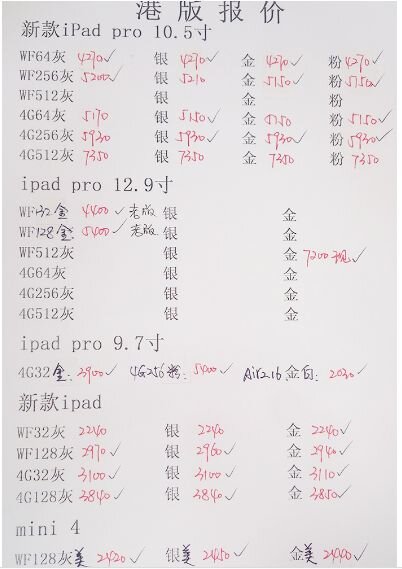 港版报价
新款iPad pro 10.5寸
WF64灰 4270✓ 银 4270✓ 金 4270✓ 粉 4270✓
WF256灰 5200✓ 银 5210 金 5150✓ 粉 5150✓
WF512灰 银 金 粉
4G64灰 5170 银 5150✓ 金 5150 粉 5150✓
4G256灰 5930 银 5930✓ 金 5930✓ 粉 5930✓
4G512灰 7350 银 7350 金 7350 粉 7350
ipad pro 12.9寸
WF32金 4400✓老版 银 金
WF128金 5400✓老版 银 金
WF512灰 银 金 7200现✓
4G64灰 银 金
4G256灰 银 金
4G512灰 银 金
ipad pro 9.7寸
4G32金: 2900✓ 4G256粉: 5400✓ Air2 16 金白: 2030✓
新款ipad
WF32灰 2240 银 2240 金 2240✓
WF128灰 2970✓ 银 2960✓ 金 2940✓
4G32灰 3100✓ 银 3100✓ 金 3110✓
4G128灰 3840✓ 银 3840✓ 金 3850✓
mini 4
WF128灰美 2420✓ 银美 2450✓ 金美 2440✓